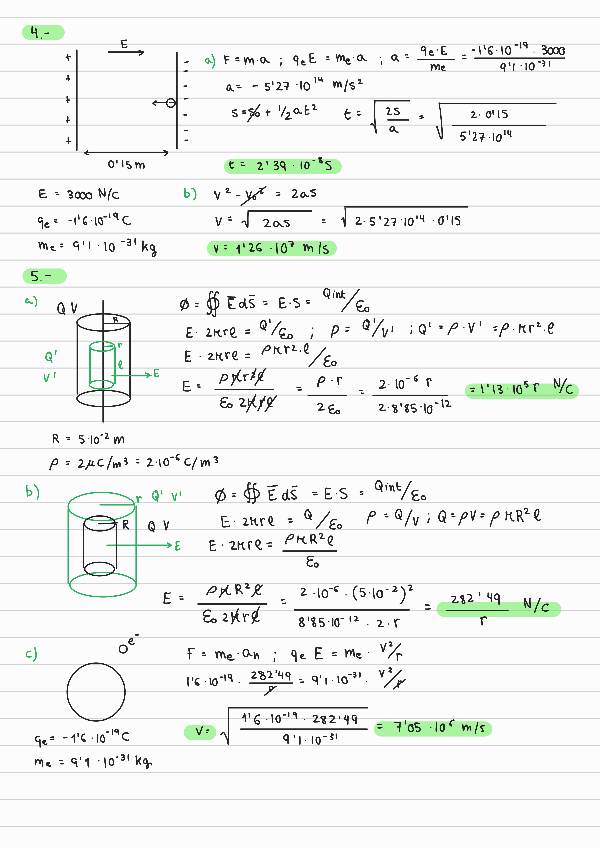 4.-
E
+ -
+ -
+ -
+ -
+ -
0'15 m
a) F = m·a ; qe E = me·a ; a = qe·E / me = -1'6·10^-19 · 3000 / 9'1·10^-31
a = -5'27·10^14 m/s²
s = s₀ + 1/2 a t² t = √(2s / a) = √(2·0'15 / 5'27·10^14)
t = 2'39·10^-8 s
E = 3000 N/C
qe = -1'6·10^-19 C
me = 9'1·10^-31 kg
b) v² - v₀² = 2as
v = √(2as) = √(2·5'27·10^14·0'15)
v = 1'26·10^7 m/s
5.-
a) Q V
R
r
Q'
V'
ℓ
E
Ø = ∯ E dS = E·S = Qint/ε₀
E·2πrℓ = Q'/ε₀ ; ρ = Q'/V' ; Q' = ρ·V' = ρ·πr²·ℓ
E·2πrℓ = ρπr²·ℓ/ε₀
E = ρπr²ℓ / ε₀2πrℓ = ρ·r / 2ε₀ = 2·10^-6 r / 2·8'85·10^-12 = 1'13·10^5 r N/C
R = 5·10^-2 m
ρ = 2μC/m³ = 2·10^-6 C/m³
b) r Q' V'
R Q V
E
Ø = ∯ E dS = E·S = Qint/ε₀
E·2πrℓ = Q/ε₀ ρ = Q/V ; Q = ρV = ρπR²ℓ
E·2πrℓ = ρπR²ℓ / ε₀
E = ρπR²ℓ / ε₀2πrℓ = 2·10^-6·(5·10^-2)² / 8'85·10^-12·2·r = 282'49 / r N/C
c) e⁻
F = me·an ; qe E = me·v²/r
1'6·10^-19 · 282'49 / r = 9'1·10^-31 · v²/r
v = √(1'6·10^-19·282'49 / 9'1·10^-31) = 7'05·10^6 m/s
qe = -1'6·10^-19 C
me = 9'1·10^-31 kg